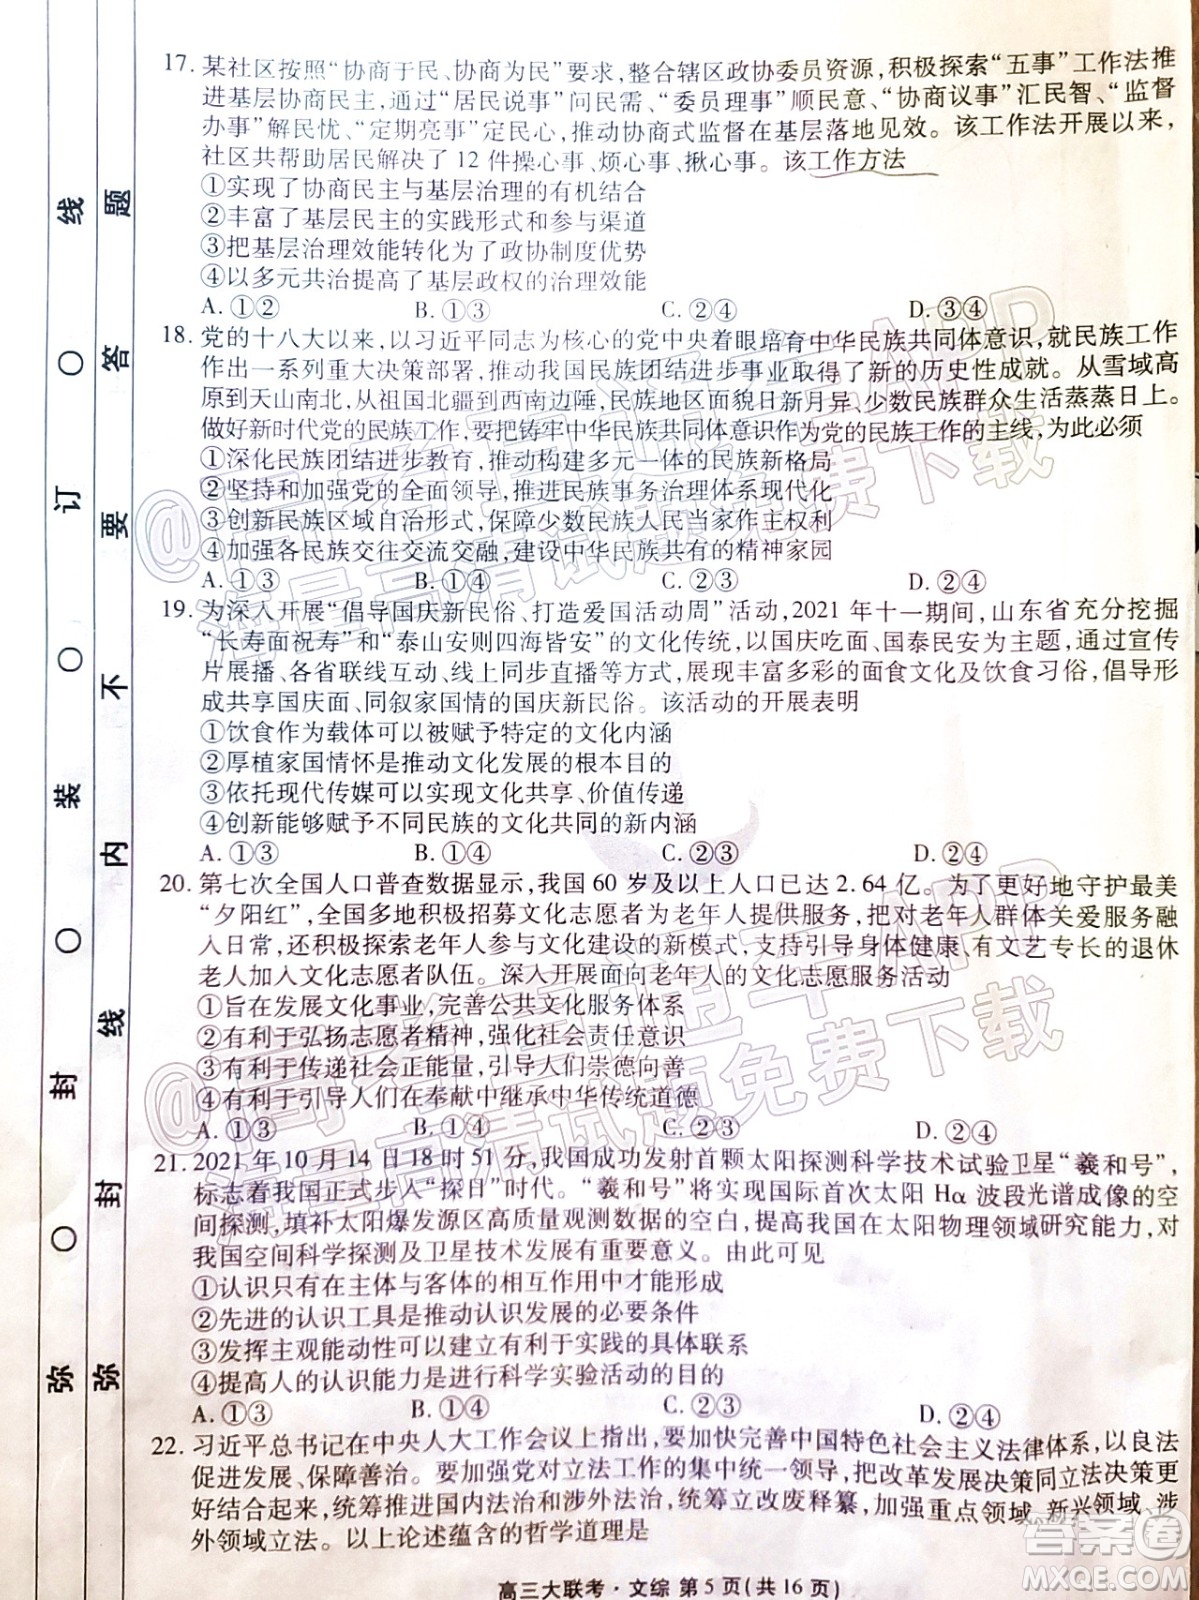 17. 某社区按照“协商于民、协商为民”要求,整合辖区政协委员资源,积极探索“五事”工作法推
进基层协商民主,通过“居民说事”问民需、“委员理事”顺民意、“协商议事”汇民智、“监督
办事”解民忧、“定期亮事”定民心,推动协商式监督在基层落地见效。该工作法开展以来,
社区共帮助居民解决了 12 件操心事、烦心事、揪心事。该工作方法
①实现了协商民主与基层治理的有机结合
②丰富了基层民主的实践形式和参与渠道
③把基层治理效能转化为了政协制度优势
④以多元共治提高了基层政权的治理效能
A. ①② B. ①③ C. ②④ D. ③④
18. 党的十八大以来,以习近平同志为核心的党中央着眼培育中华民族共同体意识,就民族工作
作出一系列重大决策部署,推动我国民族团结进步事业取得了新的历史性成就。从雪域高
原到天山南北,从祖国北疆到西南边陲,民族地区面貌日新月异、少数民族群众生活蒸蒸日上。
做好新时代党的民族工作,要把铸牢中华民族共同体意识作为党的民族工作的主线,为此必须
①深化民族团结进步教育,推动构建多元一体的民族新格局
②坚持和加强党的全面领导,推进民族事务治理体系现代化
③创新民族区域自治形式,保障少数民族人民当家作主权利
④加强各民族交往交流交融,建设中华民族共有的精神家园
A. ①③ B. ①④ C. ②③ D. ②④
19. 为深入开展“倡导国庆新民俗、打造爱国活动周”活动,2021 年十一期间,山东省充分挖掘
“长寿面祝寿”和“泰山安则四海皆安”的文化传统,以国庆吃面、国泰民安为主题,通过宣传
片展播、各省联线互动、线上同步直播等方式,展现丰富多彩的面食文化及饮食习俗,形
成共享国庆面、同叙家国情的国庆新民俗。该活动的开展表明
①饮食作为载体可以被赋予特定的文化内涵
②厚植家国情怀是推动文化发展的根本目的
③依托现代传媒可以实现文化共享、价值传递
④创新能够赋予不同民族的文化共同的新内涵
A. ①③ B. ①④ C. ②③ D. ②④
20. 第七次全国人口普查数据显示,我国 60 岁及以上人口已达 2.64 亿。为了更好地守护最美
“夕阳红”,全国多地积极招募文化志愿者为老年人提供服务,把对老年人群体关爱服务融
入日常,还积极探索老年人参与文化建设的新模式,支持引导身体健康、有文艺专长的退休
老人加入文化志愿者队伍。深入开展面向老年人的文化志愿服务活动
①旨在发展文化事业,完善公共文化服务体系
②有利于弘扬志愿者精神,强化社会责任意识
③有利于传递社会正能量,引导人们崇德向善
④有利于引导人们在奉献中继承中华传统道德
A. ①③ B. ①④ C. ②③ D. ②④
21. 2021 年 10 月 14 日 18 时 51 分,我国成功发射首颗太阳探测科学技术试验卫星“羲和号”,
标志着我国正式步入“探日”时代。“羲和号”将实现国际首次太阳 Hα 波段光谱成像的空
间探测,填补太阳爆发源区高质量观测数据的空白,提高我国在太阳物理领域研究能力,对
我国空间科学探测及卫星技术发展具有重要意义。由此可见
①认识只有在主体与客体的相互作用中才能形成
②先进的认识工具是推动认识发展的必要条件
③发挥主观能动性可以建立有利于实践的具体联系
④提高人的认识能力是进行科学实验活动的目的
A. ①③ B. ①④ C. ②③ D. ②④
22. 习近平总书记在中央人大工作会议上指出,要加快完善中国特色社会主义法律体系,以良法
促进发展、保障善治。要加强党对立法工作的集中统一领导,把改革发展决策同立法决策更
好结合起来,统筹推进国内法治和涉外法治,统筹立改废释纂,加强重点领域、新兴领域、涉
外领域立法。以上论述蕴含的哲学道理是
高三大联考·文综 第 5 页(共 16 页)
弥 ○ 封 ○ 装 ○ 订 ○ 线
弥 封 线 内 不 要 答 题
@高考直通车APP
海量高清试题免费下载
@高考直通车APP
海量高清试题免费下载
答案圈
MXQE.COM